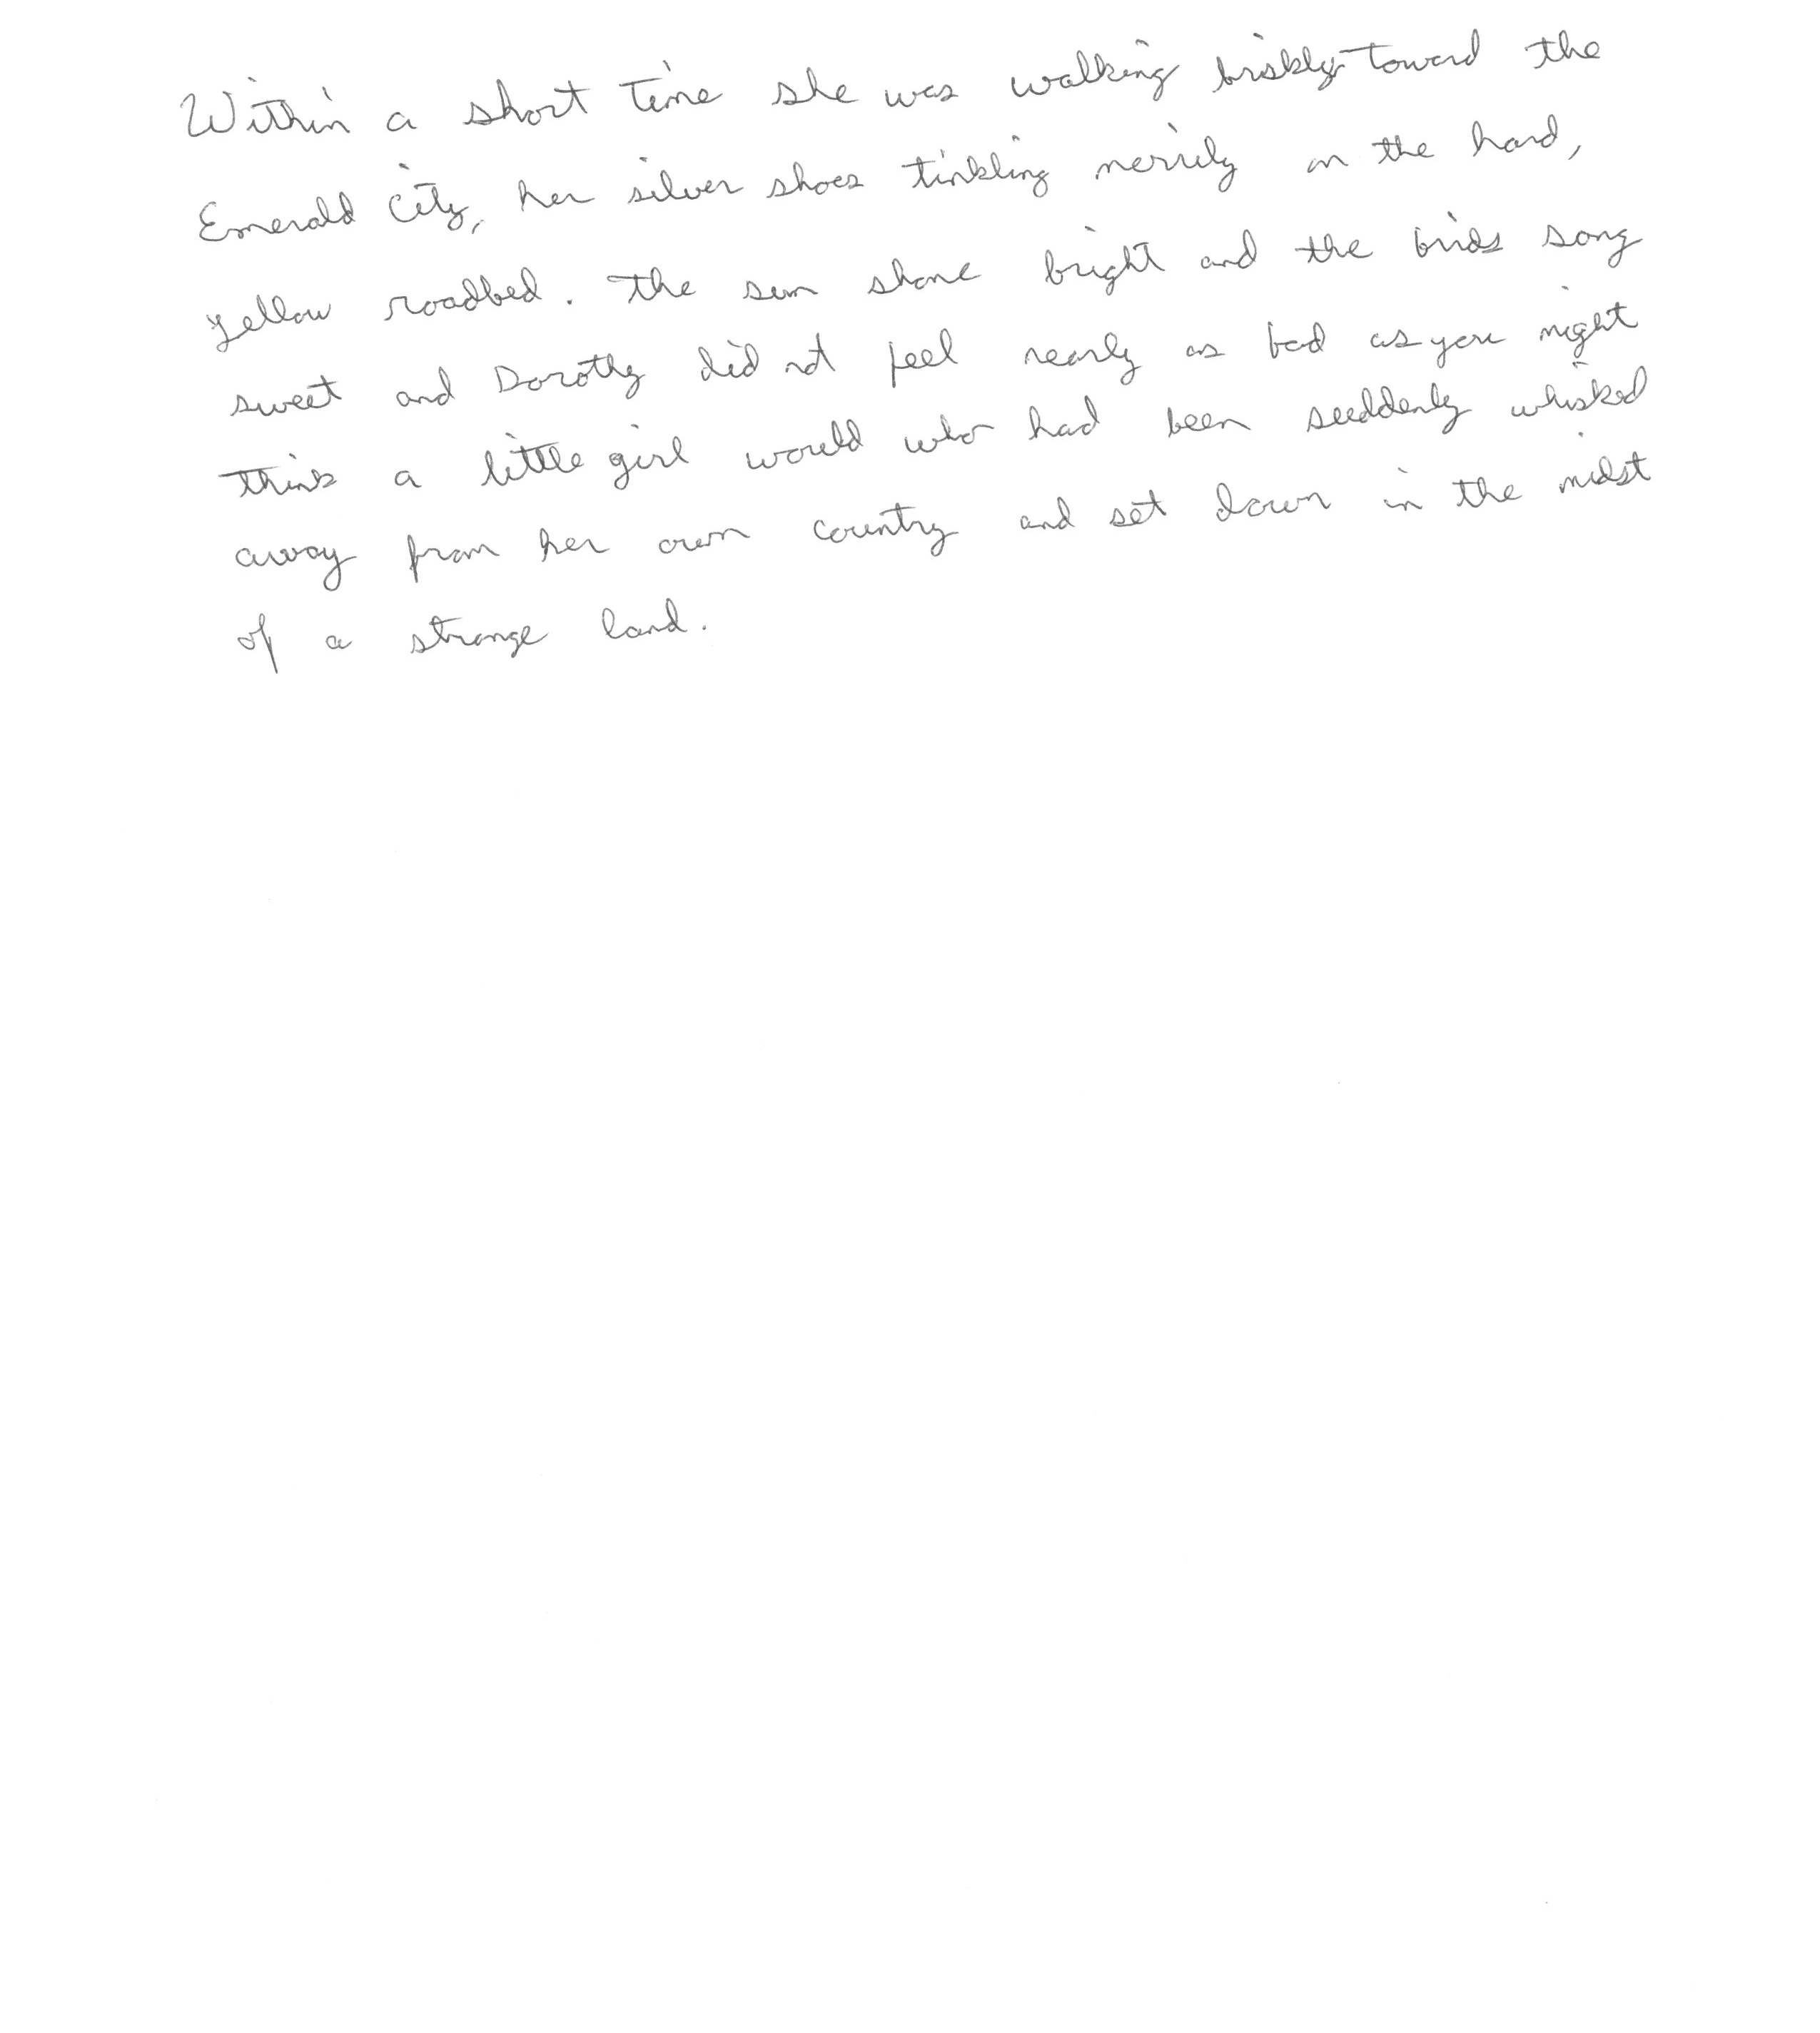 Within a short time she was walking briskly toward the
Emerald City, her silver shoes tinkling merrily on the hard,
yellow roadbed. The sun shone bright and the birds song
sweet and Dorothy did not feel nearly as bad as you might
think a little girl would who had been suddenly whisked
away from her own country and set down in the midst
of a strange land.